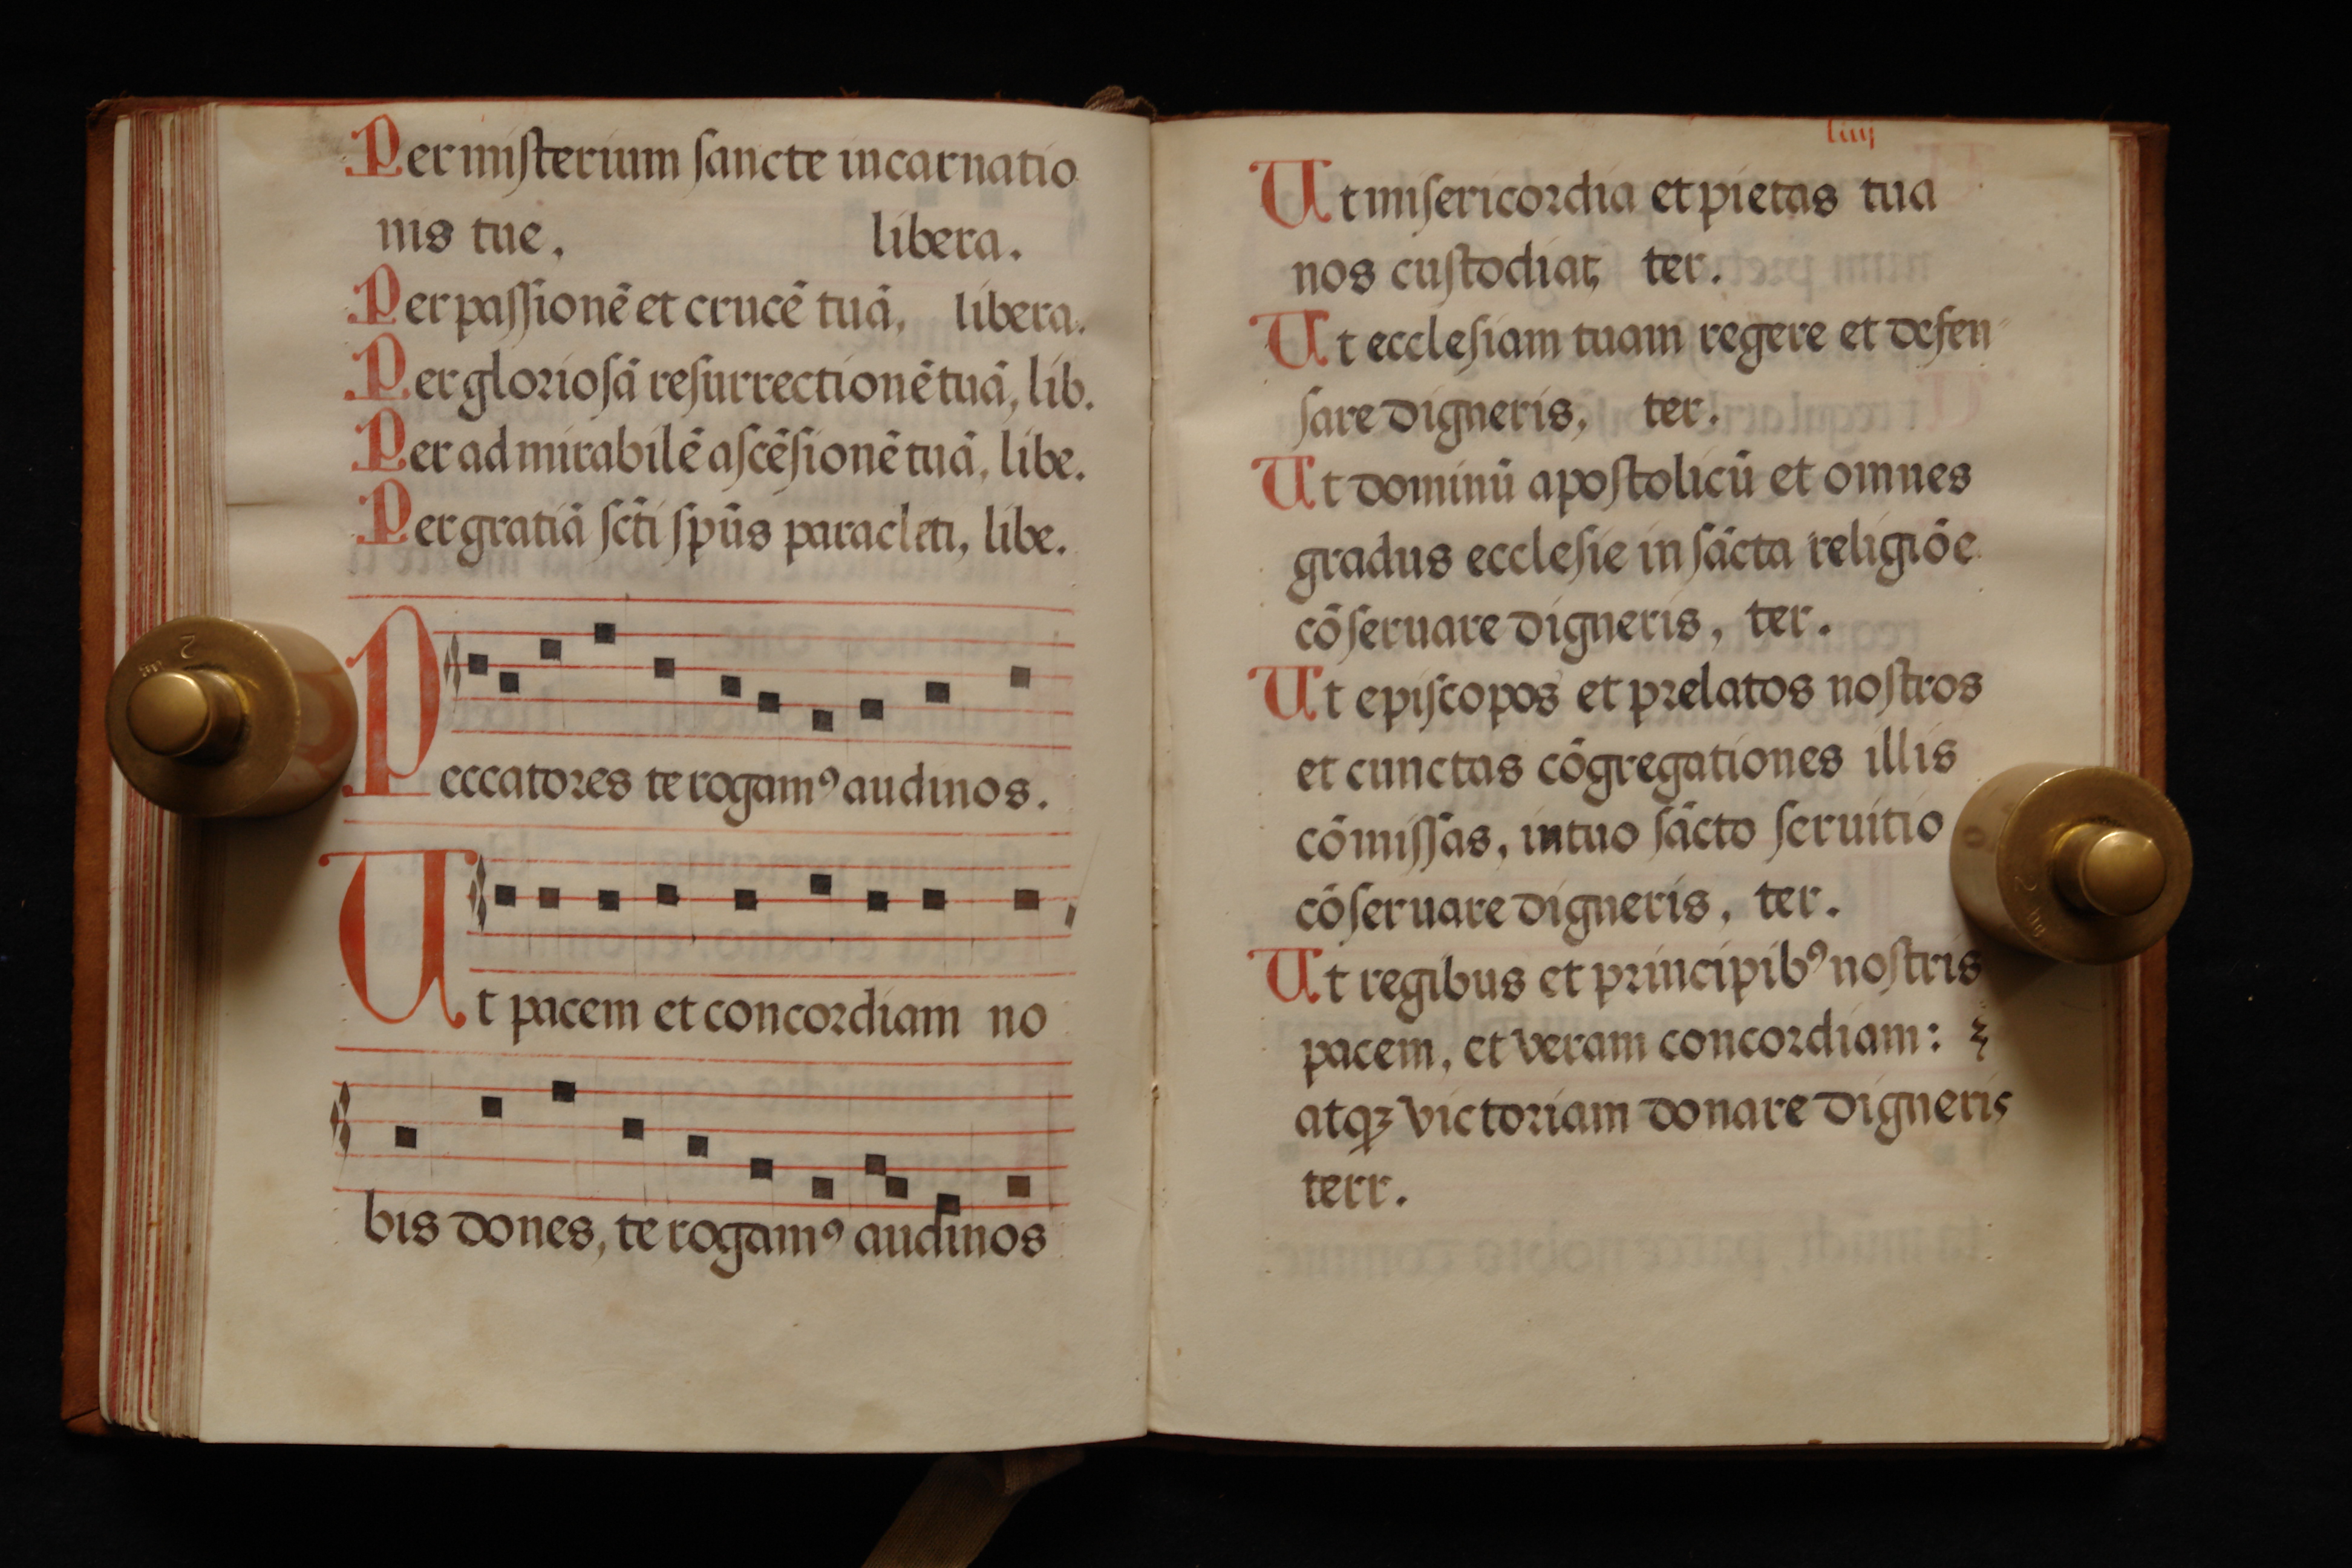 Per miſterium ſancte incarnatio
nis tue, libera.
Per paſſionē et crucē tuā, libera.
Per glorioſā reſurrectionē tuā, lib.
Per admirabilē aſcēſionē tuā, libe.
Per gratiā ſc̄ti ſpūs paracleti, libe.
Peccatores te rogamꝰ audi nos.
Ut pacem et concordiam no
bis dones, te rogamꝰ audi nos
liiij
Ut miſericordia et pietas tua
nos cuſtodiat, ter.
Ut eccleſiam tuam regere et defen
ſare digneris, ter.
Ut dominū apoſtolicū et omnes
gradus eccleſie in ſācta religiōe
cōſeruare digneris, ter.
Ut epiſcopos et prelatos noſtros
et cunctas cōgregationes illis
cōmiſſas, in tuo ſācto ſeruitio
cōſeruare digneris, ter.
Ut regibus et principibꝰ noſtris
pacem, et veram concordiam:
atqꝫ victoriam donare digneris
terr.